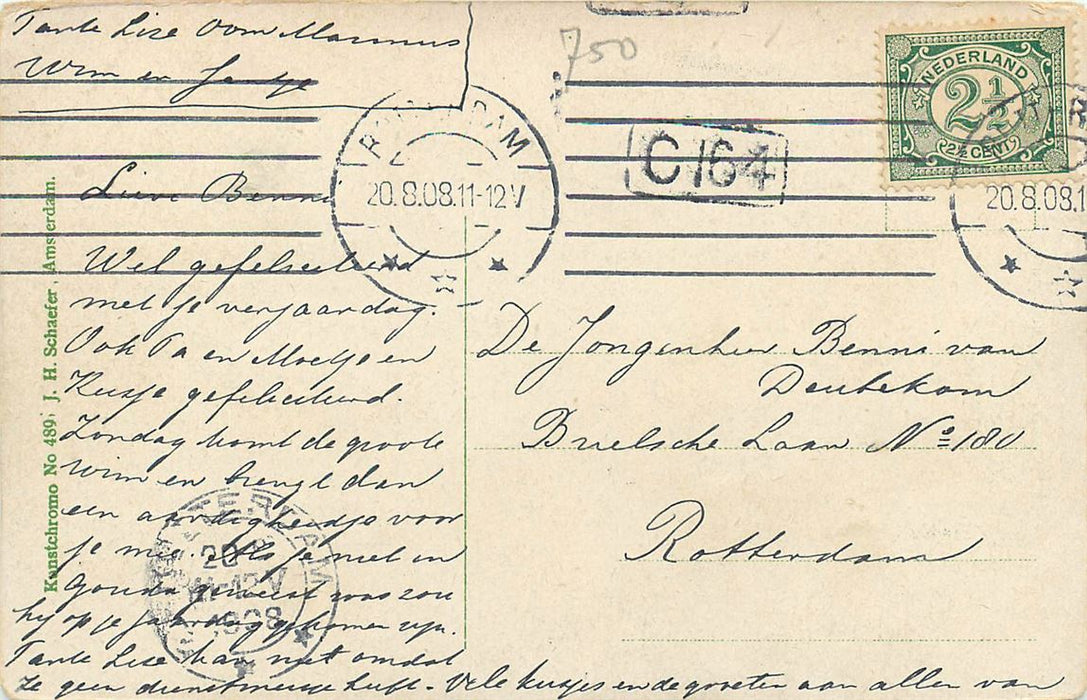 Tante Lise Oom Marinus
Wim en Jantje
750
NEDERLAND
2 1/2
2½ CENT
ROTTERDAM
20.8.08.11-12V
C164
20.8.08.1
Lieve Benni
Wel gefeliciteerd
met je verjaardag.
Ook Pa en Moetje en
Zusje gefeliciteerd.
Zondag komt de groote
Wim en brengt dan
een aardigheidje voor
je mee. Als je niet in
Gouda geweest was zou
hij op je jaardag gekomen zijn.
Tante Lise kan niet omdat
ze geen dienstmeisje heeft - Vele kusjes en de groeten aan allen van
De Jongenheer Benni van
Deutekom
Brielsche Laan No 180
Rotterdam
Kunstchromo No 489, J. H. Schaefer, Amsterdam.
ROTTERDAM
20 8
11-12V
1908